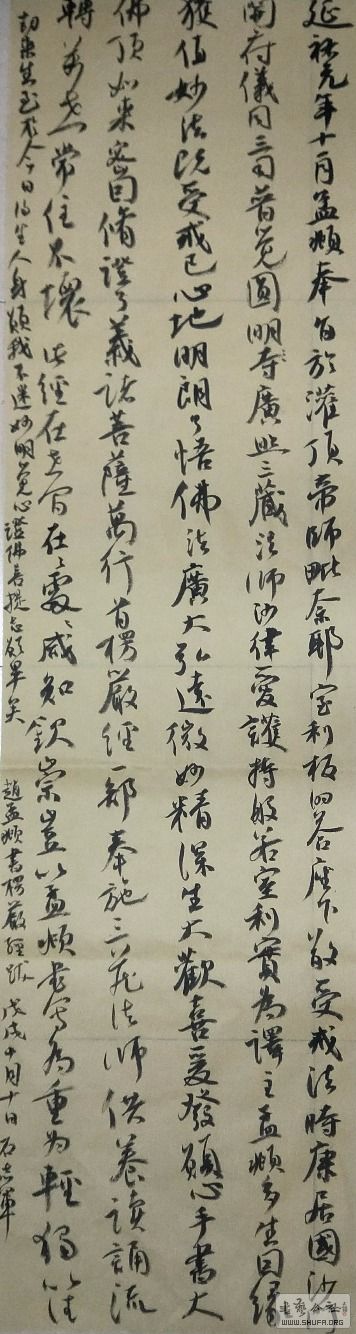 延祐元年十一月孟頫奉旨於灌頂帝師毗奈耶室利板的答座下敬受戒法時康居國沙
開府儀同三司普覺圓明寺廣照三藏法師沙律愛護持般若室利實為譯主孟頫多生因緣
獲值妙法既受戒已心地明朗了悟佛法廣大弘遠微妙精深生大歡喜爰發願心手書大
佛頂如來密因脩證了義諸菩薩萬行首楞嚴經一部奉施三藏法師供養讀誦流
轉萬世常住不壞此經在世間在在處處咸知欽崇豈以孟頫書寫為重為輕獨
劫來生至於今日得生人身願我不迷妙明覺心證佛菩提志願畢矣 趙孟頫書楞嚴經跋 戊戌十月十日 石志軍
書藝公社
www.SHUFA.ORG